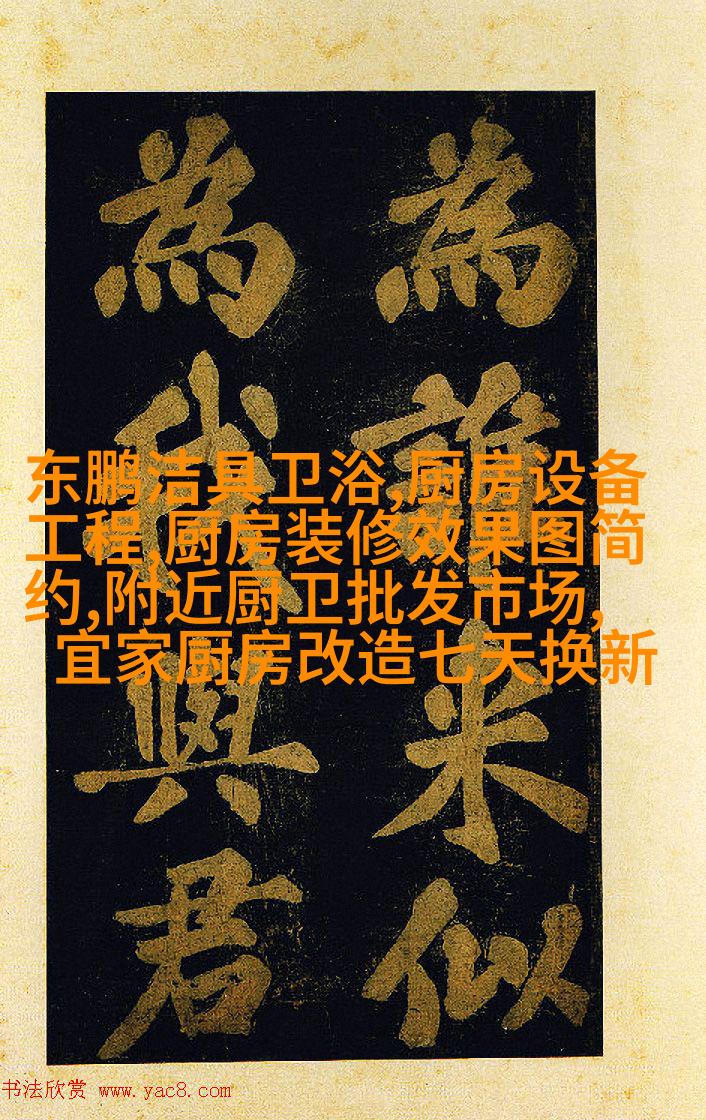 為誰来似
為我與君
东鹏洁具卫浴,厨房设备
工程,厨房装修效果图简
约,附近厨卫批发市场,
宜家厨房改造七天换新
书法欣赏 www.yac8.com